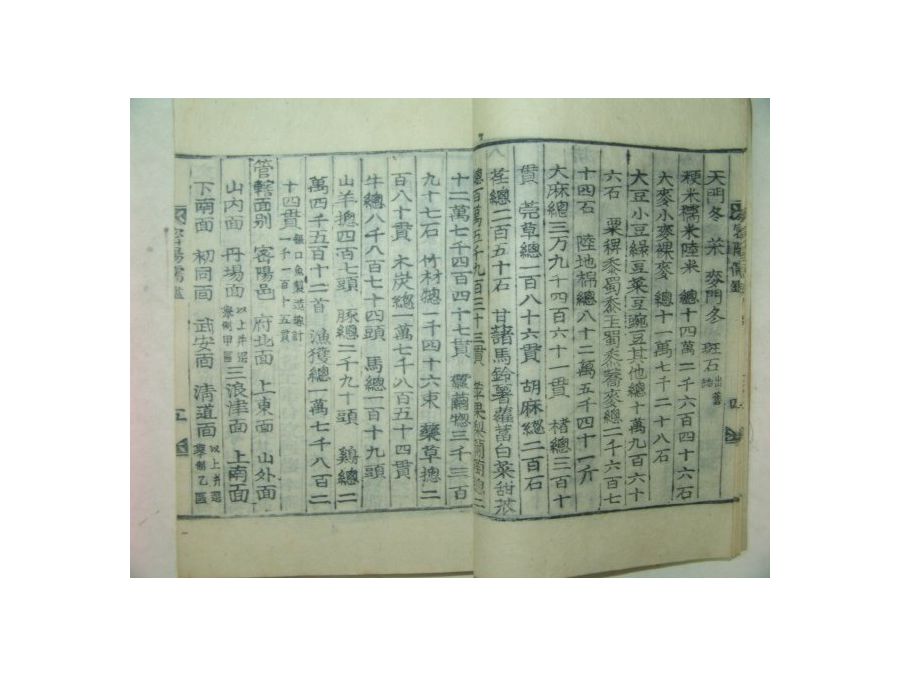 天門冬 菜 麥門冬 斑石 出舊誌
粳米糯米陸米 總十四萬二千六百四十六石
大麥小麥裸麥 總十一萬七千二十八石
大豆小豆綠豆菜豆豌豆其他總十萬九百六十
六石 粟稗黍蜀黍玉蜀黍蕎麥總二千六百七
十四石 陸地棉總八十二萬五千四十一斤
大麻總三万九千四百六十一貫 楮總三百十
貫 莞草總一百八十六貫 胡麻總二百石
荏總二百五十石 甘藷馬鈴薯蘿蔔白菜甜苽
總百萬五千九百三十三貫 苹果梨葡萄總二
十二萬七千四百四十七貫 蠶繭總三千三百
九十七石 竹材總一千四十六束 藥草總二
百八十貫 木炭總一萬七千八百五十四貫
牛總八千八百七十四頭 馬總一百十九頭
山羊總四百七頭 豚總二千九十頭 鷄總二
萬四千五百十二首 漁獲總一萬七千八百二
十四貫 製造總計一千一百十五貫
管轄面別 密陽邑 府北面 上東面 山外面
山內面 丹場面 以上 選擧制甲區 三浪津面 上南面
下南面 初同面 武安面 淸道面 以上 選擧制乙區